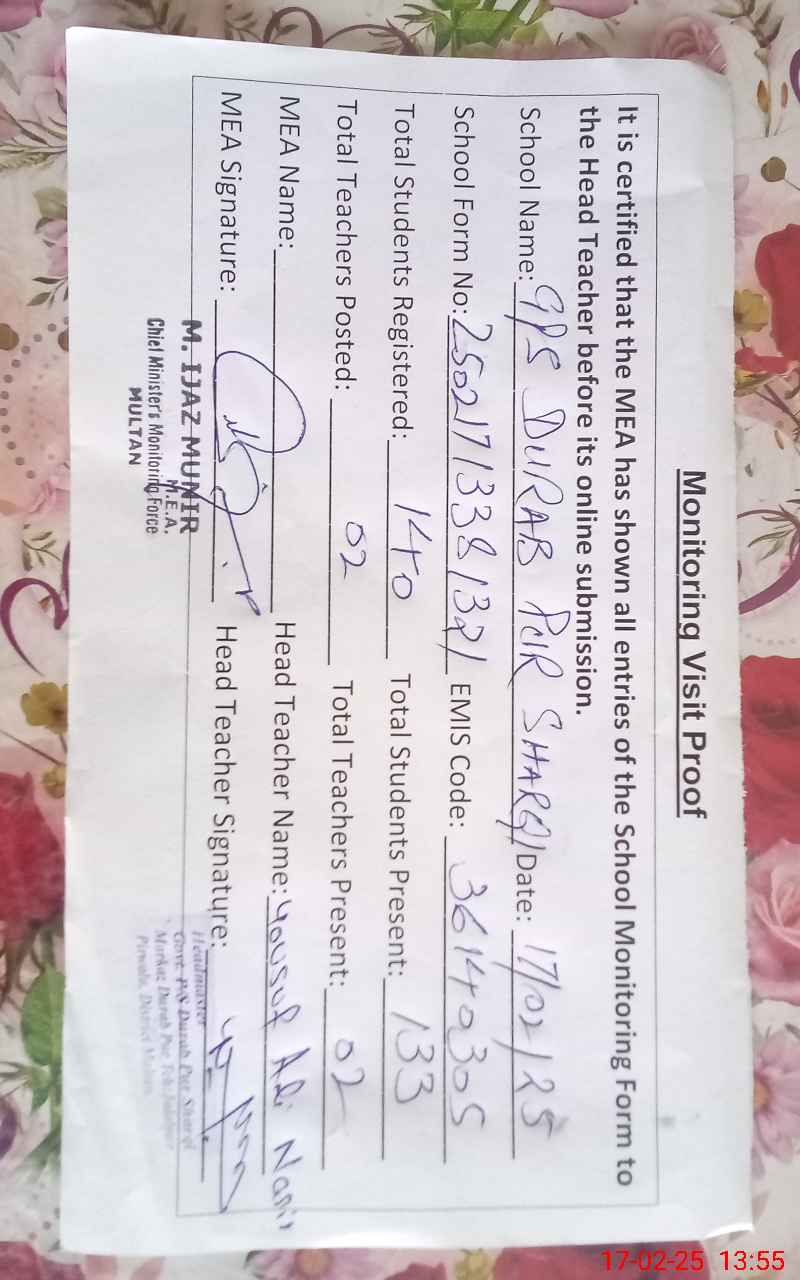 Monitoring Visit Proof
It is certified that the MEA has shown all entries of the School Monitoring Form to
the Head Teacher before its online submission.
School Name: GPS DURAB PUR SHARQI Date: 17/02/25
School Form No: 25021713381321 EMIS Code: 36140305
Total Students Registered: 140 Total Students Present: 133
Total Teachers Posted: 02 Total Teachers Present: 02
MEA Name: Head Teacher Name: Yousuf Ali Nasir
MEA Signature: Head Teacher Signature:
M. IJAZ MUNIR
M.E.A.
Chief Minister's Monitoring Force
MULTAN
Headmaster
Govt. P/S Durab Pur Sharqi
Markaz Durab Pur
District
17-02-25 13:55